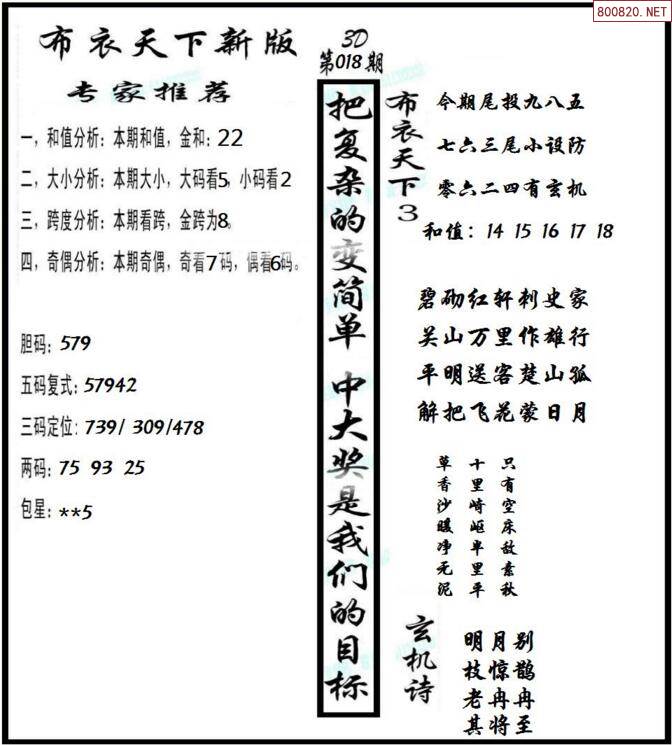 800820.NET
布衣天下新版
专家推荐
一，和值分析：本期和值，金和：22
二，大小分析：本期大小，大码看5，小码看2
三，跨度分析：本期看跨，金跨为8。
四，奇偶分析：本期奇偶，奇看7码，偶看6码。
胆码：579
五码复式：57942
三码定位：739/ 309/478
两码：75 93 25
包星：**5
3D
第018期
把复杂的变简单 中大奖是我们的目标
布衣天下3
今期尾投九八五
七六三尾小设防
零六二四有玄机
和值：14 15 16 17 18
碧砌红轩刺史家
关山万里作雄行
平明送客楚山孤
解把飞花蒙日月
只有空床敌素秋
十里崎岖半里平
草香沙暖净无泥
玄机诗
明月别
枝惊鹊
老冉冉
其将至